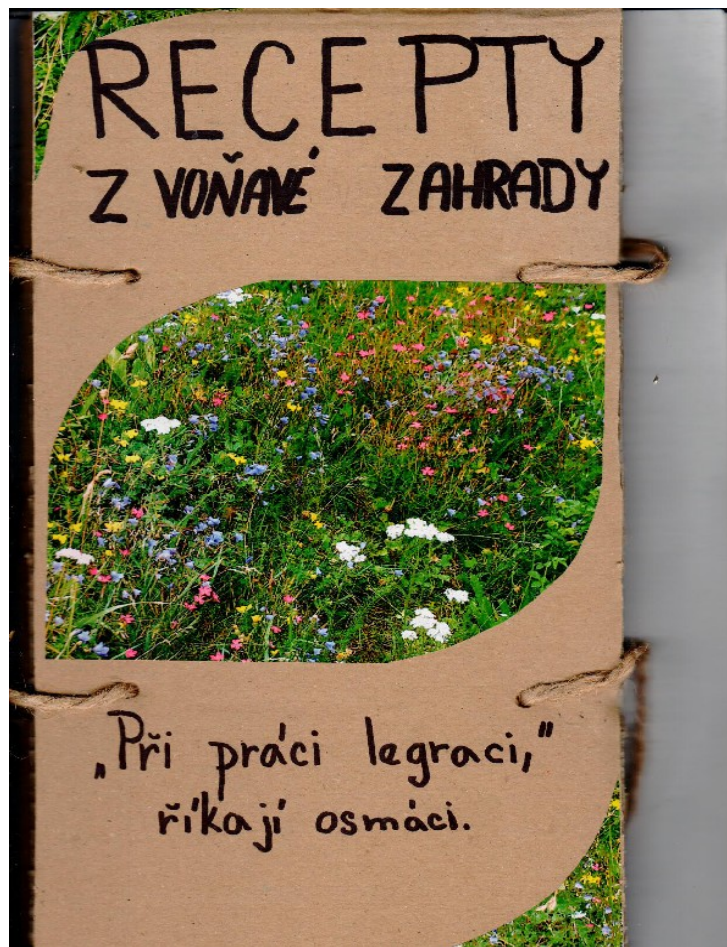 RECEPTY
Z VOŇAVÉ ZAHRADY
„Při práci legraci,“
říkají osmáci.